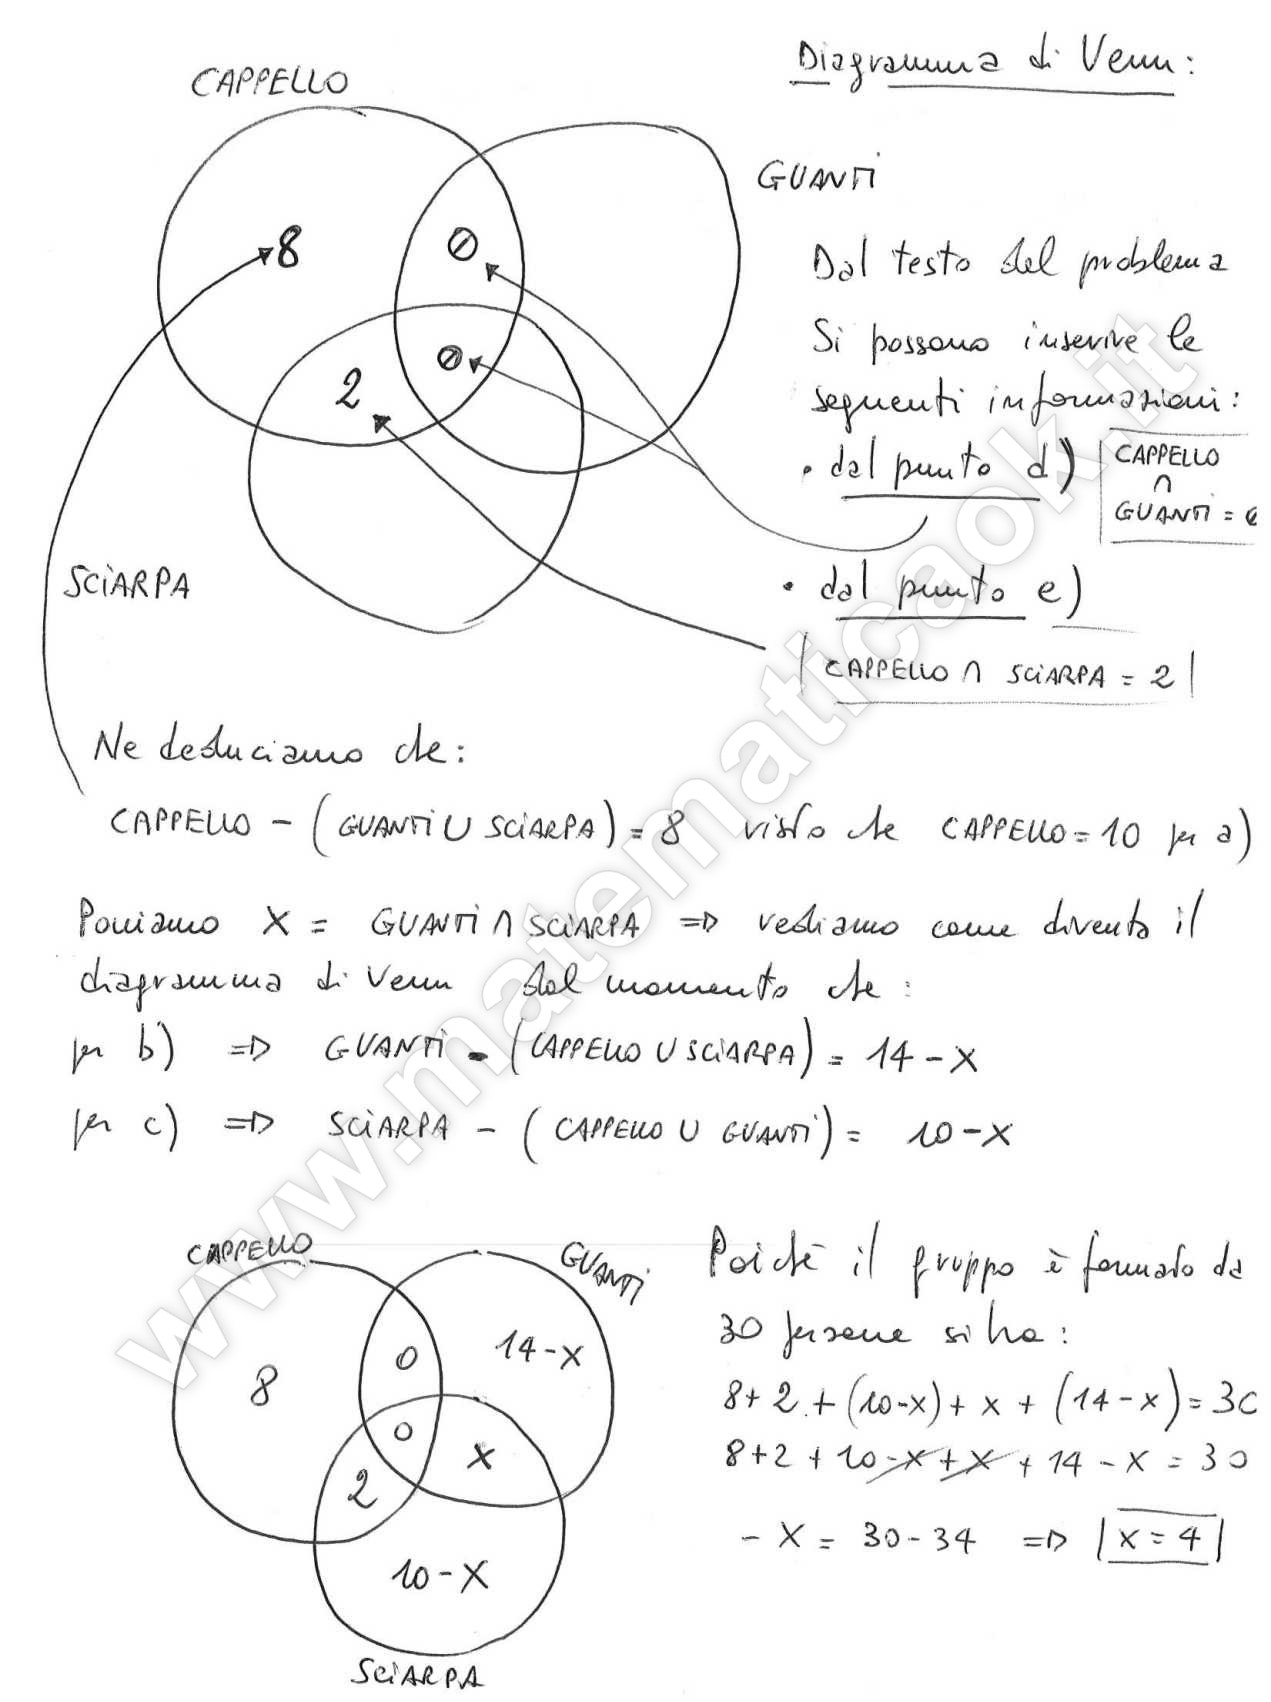 Diagramma di Venn:
CAPPELLO
GUANTI
8
0
0
2
SCIARPA
Dal testo del problema
Si possono inserire le
seguenti informazioni:
• dal punto d)
CAPPELLO
∩
GUANTI = 0
• dal punto e)
CAPPELLO ∩ SCIARPA = 2
Ne deduciamo che:
CAPPELLO - (GUANTI ∪ SCIARPA) = 8 visto che CAPPELLO = 10 per a)
Poniamo X = GUANTI ∩ SCIARPA => vediamo come diventa il
diagramma di Venn dal momento che:
per b) => GUANTI - (CAPPELLO ∪ SCIARPA) = 14 - X
per c) => SCIARPA - (CAPPELLO ∪ GUANTI) = 10 - X
CAPPELLO
GUANTI
8
0
14 - X
0
X
2
10 - X
SCIARPA
Poiché il gruppo è formato da
30 persone si ha:
8 + 2 + (10 - x) + x + (14 - x) = 30
8 + 2 + 10 - x + x + 14 - x = 30
- X = 30 - 34 => x = 4
www.matematicaok.it